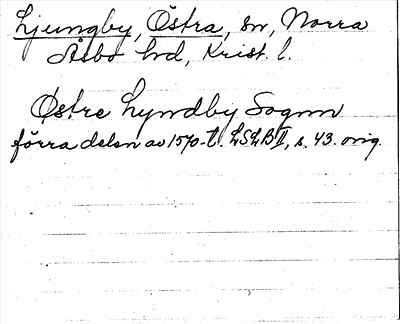 Ljungby, Östra, sn, Norra
Åsbo hd, Krist. l.
Østre Lyndby Sognn
förra delen av 1570-t. LSLB II, s. 43. orig.